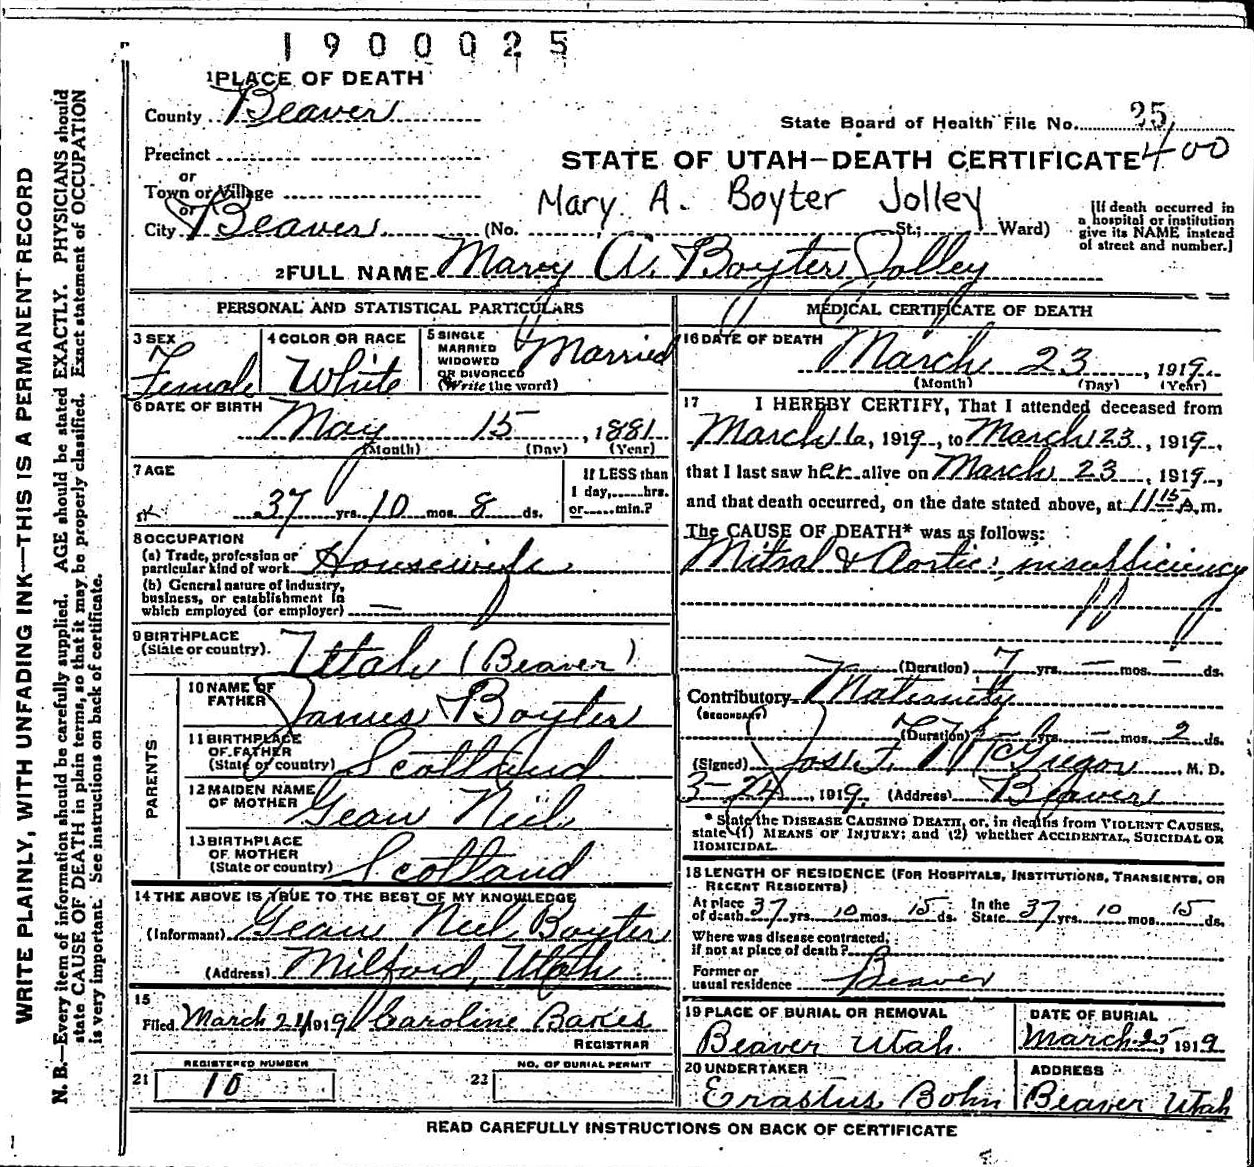 1900025
1 PLACE OF DEATH
County Beaver
State Board of Health File No. 25
Precinct
400
STATE OF UTAH—DEATH CERTIFICATE
or
Town or Village
Mary A. Boyter Jolley
or
City Beaver (No. St.; Ward)
[If death occurred in
a hospital or institution
give its NAME instead
of street and number.]
2 FULL NAME Mary A. Boyter Jolley
PERSONAL AND STATISTICAL PARTICULARS
3 SEX
Female
4 COLOR OR RACE
White
5 SINGLE
MARRIED
WIDOWED
OR DIVORCED
(Write the word)
Married
6 DATE OF BIRTH
May 15, 1881
(Month) (Day) (Year)
7 AGE
37 yrs. 10 mos. 8 ds.
If LESS than
1 day, hrs.
or min.?
8 OCCUPATION
(a) Trade, profession or
particular kind of work Housewife
(b) General nature of industry,
business, or establishment in
which employed (or employer) —
9 BIRTHPLACE
(State or country). Utah (Beaver)
PARENTS
10 NAME OF
FATHER James Boyter
11 BIRTHPLACE
OF FATHER
(State or country) Scotland
12 MAIDEN NAME
OF MOTHER Gean Neil
13 BIRTHPLACE
OF MOTHER
(State or country) Scotland
14 THE ABOVE IS TRUE TO THE BEST OF MY KNOWLEDGE
(Informant) Gean Neil Boyter
(Address) Milford, Utah
15
Filed March 1919 Caroline
REGISTRAR
REGISTERED NUMBER
21 10
NO. OF BURIAL PERMIT
22
MEDICAL CERTIFICATE OF DEATH
16 DATE OF DEATH
March 23, 1919
(Month) (Day) (Year)
17 I HEREBY CERTIFY, That I attended deceased from
March 16, 1919, to March 23, 1919,
that I last saw her alive on March 23, 1919,
and that death occurred, on the date stated above, at 11 15 A.m.
The CAUSE OF DEATH* was as follows:
Mitral & Aortic insufficiency
(Duration) 7 yrs. — mos. — ds.
Contributory Maternity
(SECONDARY)
(Duration) — yrs. — mos. 2 ds.
(Signed) Jos. F. McGregor, M. D.
3-24, 1919 (Address) Beaver
* State the DISEASE CAUSING DEATH, or, in deaths from VIOLENT CAUSES,
state (1) MEANS OF INJURY; and (2) whether ACCIDENTAL, SUICIDAL OR
HOMICIDAL.
18 LENGTH OF RESIDENCE (FOR HOSPITALS, INSTITUTIONS, TRANSIENTS, OR
RECENT RESIDENTS)
At place
of death 37 yrs. 10 mos. 15 ds.
In the
State 37 yrs. 10 mos. 15 ds.
Where was disease contracted,
if not at place of death?
Former or
usual residence Beaver
19 PLACE OF BURIAL OR REMOVAL
Beaver Utah.
DATE OF BURIAL
March 25, 1919
20 UNDERTAKER
Erastus Bohn
ADDRESS
Beaver Utah
READ CAREFULLY INSTRUCTIONS ON BACK OF CERTIFICATE
WRITE PLAINLY, WITH UNFADING INK—THIS IS A PERMANENT RECORD
N. B.—Every item of information should be carefully supplied. AGE should be stated EXACTLY. PHYSICIANS should
state CAUSE OF DEATH in plain terms, so that it may be properly classified. Exact statement of OCCUPATION
is very important. See instructions on back of certificate.